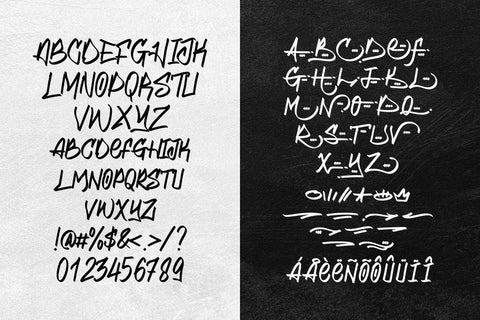 ABCDEFGHIJK
LMNOPQRSTU
VWXYZ
ABCDEFGHIJK
LMNOPQRSTU
VWXYZ
!@#%$&<.>/?
0123456789
A B C D E F
G H I J K L
M N O P Q
R S T U V
X Y Z
ÁÅÈËÑÕÔÛÜÏÎ